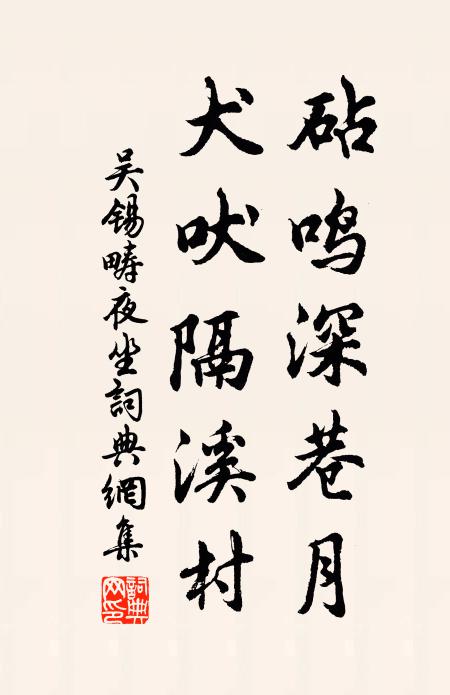 砧鸣深巷月
犬吠隔溪村
吴锡畴夜坐詞典網集
詞典网印